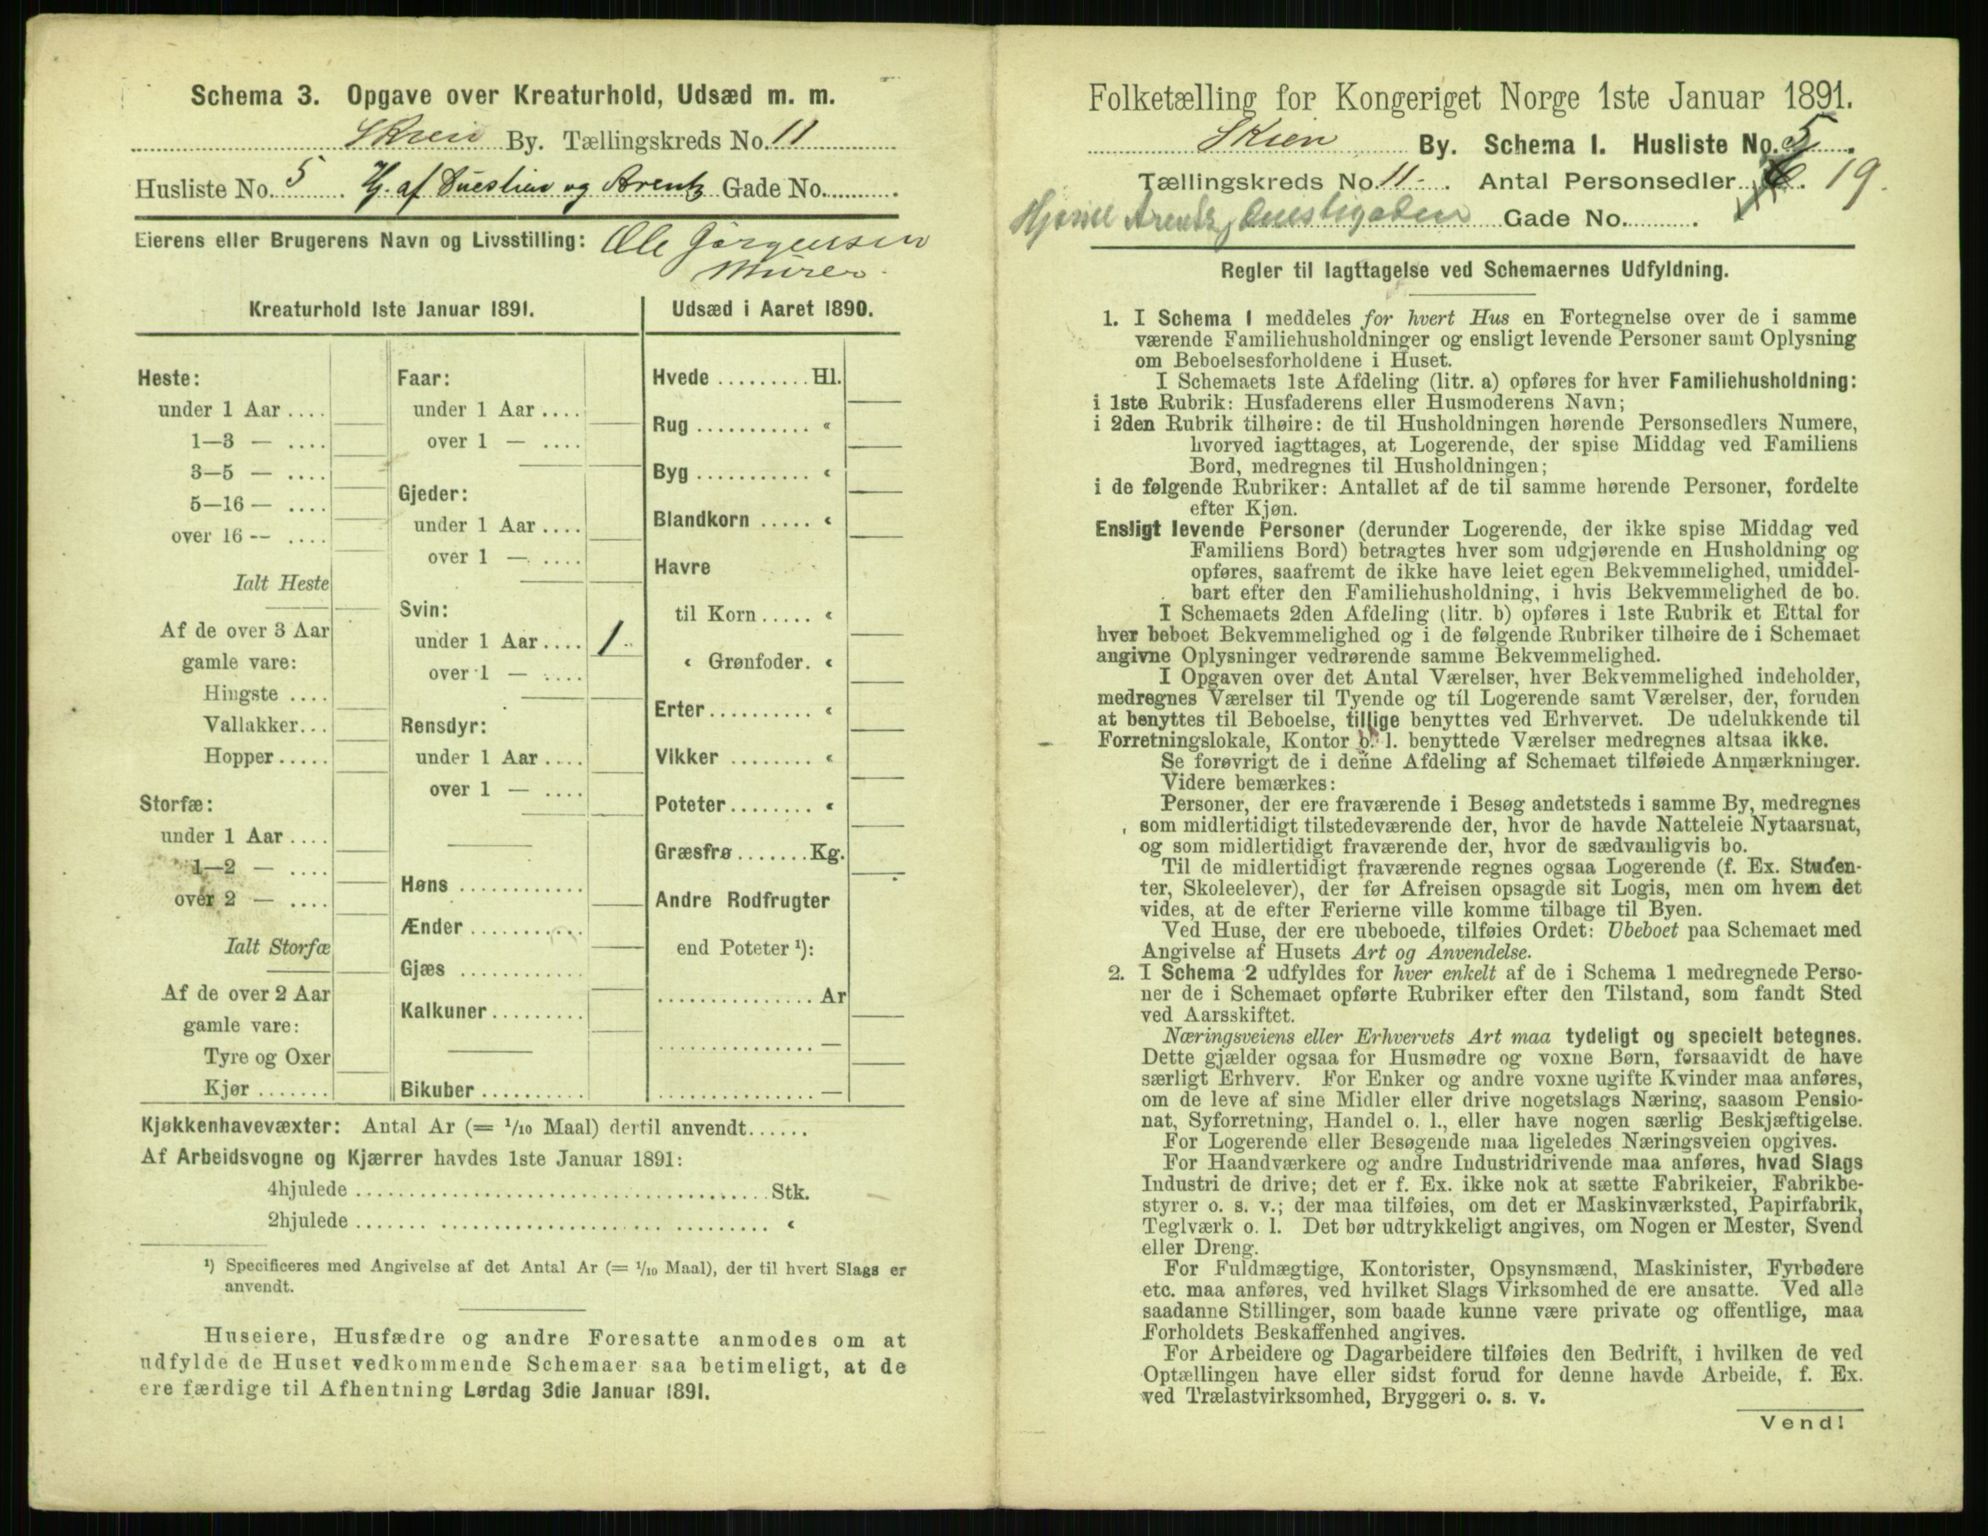 Schema 3. Opgave over Kreaturhold, Udsæd m. m.
Skien By. Tællingskreds No. 11
Husliste No. 5 Hj. af Duestien og Arentz Gade No.
Eierens eller Brugerens Navn og Livsstilling: Ole Jørgensen
Murer
Kreaturhold 1ste Januar 1891.
Heste:
under 1 Aar ....
1—3 — ....
3—5 — ....
5—16 — ....
over 16 — ....
Ialt Heste
Af de over 3 Aar
gamle vare:
Hingste ....
Vallakker...
Hopper .....
Storfæ:
under 1 Aar ....
1—2 — ....
over 2 — ....
Ialt Storfæ
Af de over 2 Aar
gamle vare:
Tyre og Oxer
Kjør .......
Faar:
under 1 Aar ....
over 1 — ....
Gjeder:
under 1 Aar ....
over 1 — ....
Svin:
under 1 Aar .... 1
over 1 — ....
Rensdyr:
under 1 Aar ....
over 1 — ....
Høns ............
Ænder ...........
Gjæs ............
Kalkuner.........
Bikuber ..........
Udsæd i Aaret 1890.
Hvede ......... Hl.
Rug ........... «
Byg ........... «
Blandkorn ..... «
Havre
til Korn ..... «
« Grønfoder. «
Erter .......... «
Vikker ........ «
Poteter ........ «
Græsfrø ....... Kg.
Andre Rodfrugter
end Poteter ¹):
............... Ar
............... —
............... —
Kjøkkenhavevæxter: Antal Ar (= 1/10 Maal) dertil anvendt......
Af Arbeidsvogne og Kjærrer havdes 1ste Januar 1891:
4hjulede ........ Stk.
2hjulede ........ «
¹) Specificeres med Angivelse af det Antal Ar (= 1/10 Maal), der til hvert Slags er
anvendt.
Huseiere, Husfædre og andre Foresatte anmodes om at
udfylde de Huset vedkommende Schemaer saa betimeligt, at de
ere færdige til Afhentning Lørdag 3die Januar 1891.
Folketælling for Kongeriget Norge 1ste Januar 1891.
Skien By. Schema I. Husliste No. 5
Tællingskreds No. 11 Antal Personsedler 19.
Hjørnet Arentz, Duestigaden Gade No.
Regler til Iagttagelse ved Schemaernes Udfyldning.
1. I Schema 1 meddeles for hvert Hus en Fortegnelse over de i samme
værende Familiehusholdninger og ensligt levende Personer samt Oplysning
om Beboelsesforholdene i Huset.
I Schemaets 1ste Afdeling (litr. a) opføres for hver Familiehusholdning:
i 1ste Rubrik: Husfaderens eller Husmoderens Navn;
i 2den Rubrik tilhøire: de til Husholdningen hørende Personsedlers Numere,
hvorved iagttages, at Logerende, der spise Middag ved Familiens
Bord, medregnes til Husholdningen;
i de følgende Rubriker: Antallet af de til samme hørende Personer, fordelte
efter Kjøn.
Ensligt levende Personer (derunder Logerende, der ikke spise Middag ved
Familiens Bord) betragtes hver som udgjørende en Husholdning og
opføres, saafremt de ikke have leiet egen Bekvemmelighed, umiddel-
bart efter den Familiehusholdning, i hvis Bekvemmelighed de bo.
I Schemaets 2den Afdeling (litr. b) opføres i 1ste Rubrik et Ettal for
hver beboet Bekvemmelighed og i de følgende Rubriker tilhøire de i Schemaet
angivne Oplysninger vedrørende samme Bekvemmelighed.
I Opgaven over det Antal Værelser, hver Bekvemmelighed indeholder,
medregnes Værelser til Tyende og til Logerende samt Værelser, der, foruden
at benyttes til Beboelse, tillige benyttes ved Erhvervet. De udelukkende til
Forretningslokale, Kontor o. l. benyttede Værelser medregnes altsaa ikke.
Se forøvrigt de i denne Afdeling af Schemaet tilføiede Anmærkninger.
Videre bemærkes:
Personer, der ere fraværende i Besøg andetsteds i samme By, medregnes
som midlertidigt tilstedeværende der, hvor de havde Natteleie Nytaarsnat,
og som midlertidigt fraværende der, hvor de sædvanligvis bo.
Til de midlertidigt fraværende regnes ogsaa Logerende (f. Ex. Studen-
ter, Skoleelever), der før Afreisen opsagde sit Logis, men om hvem det
vides, at de efter Ferierne ville komme tilbage til Byen.
Ved Huse, der ere ubeboede, tilføies Ordet: Ubeboet paa Schemaet med
Angivelse af Husets Art og Anvendelse.
2. I Schema 2 udfyldes for hver enkelt af de i Schema 1 medregnede Perso-
ner de i Schemaet opførte Rubriker efter den Tilstand, som fandt Sted
ved Aarsskiftet.
Næringsveiens eller Erhvervets Art maa tydeligt og specielt betegnes.
Dette gjælder ogsaa for Husmødre og voxne Børn, forsaavidt de have
særligt Erhverv. For Enker og andre voxne ugifte Kvinder maa anføres,
om de leve af sine Midler eller drive nogetslags Næring, saasom Pensio-
nat, Syforretning, Handel o. l., eller have nogen særlig Beskjæftigelse.
For Logerende eller Besøgende maa ligeledes Næringsveien opgives.
For Haandværkere og andre Industridrivende maa anføres, hvad Slags
Industri de drive; det er f. Ex. ikke nok at sætte Fabrikeier, Fabrikbe-
styrer o. s. v.; der maa tilføies, om det er Maskinværksted, Papirfabrik,
Teglværk o. l. Det bør udtrykkeligt angives, om Nogen er Mester, Svend
eller Dreng.
For Fuldmægtige, Kontorister, Opsynsmænd, Maskinister, Fyrbødere
etc. maa anføres, ved hvilket Slags Virksomhed de ere ansatte. Ved alle
saadanne Stillinger, som baade kunne være private og offentlige, maa
Forholdets Beskaffenhed angives.
For Arbeidere og Dagarbeidere tilføies den Bedrift, i hvilken de ved
Optællingen have eller sidst forud for denne havde Arbeide, f. Ex.
ved Trælastvirksomhed, Bryggeri o. s. v.
Vend!